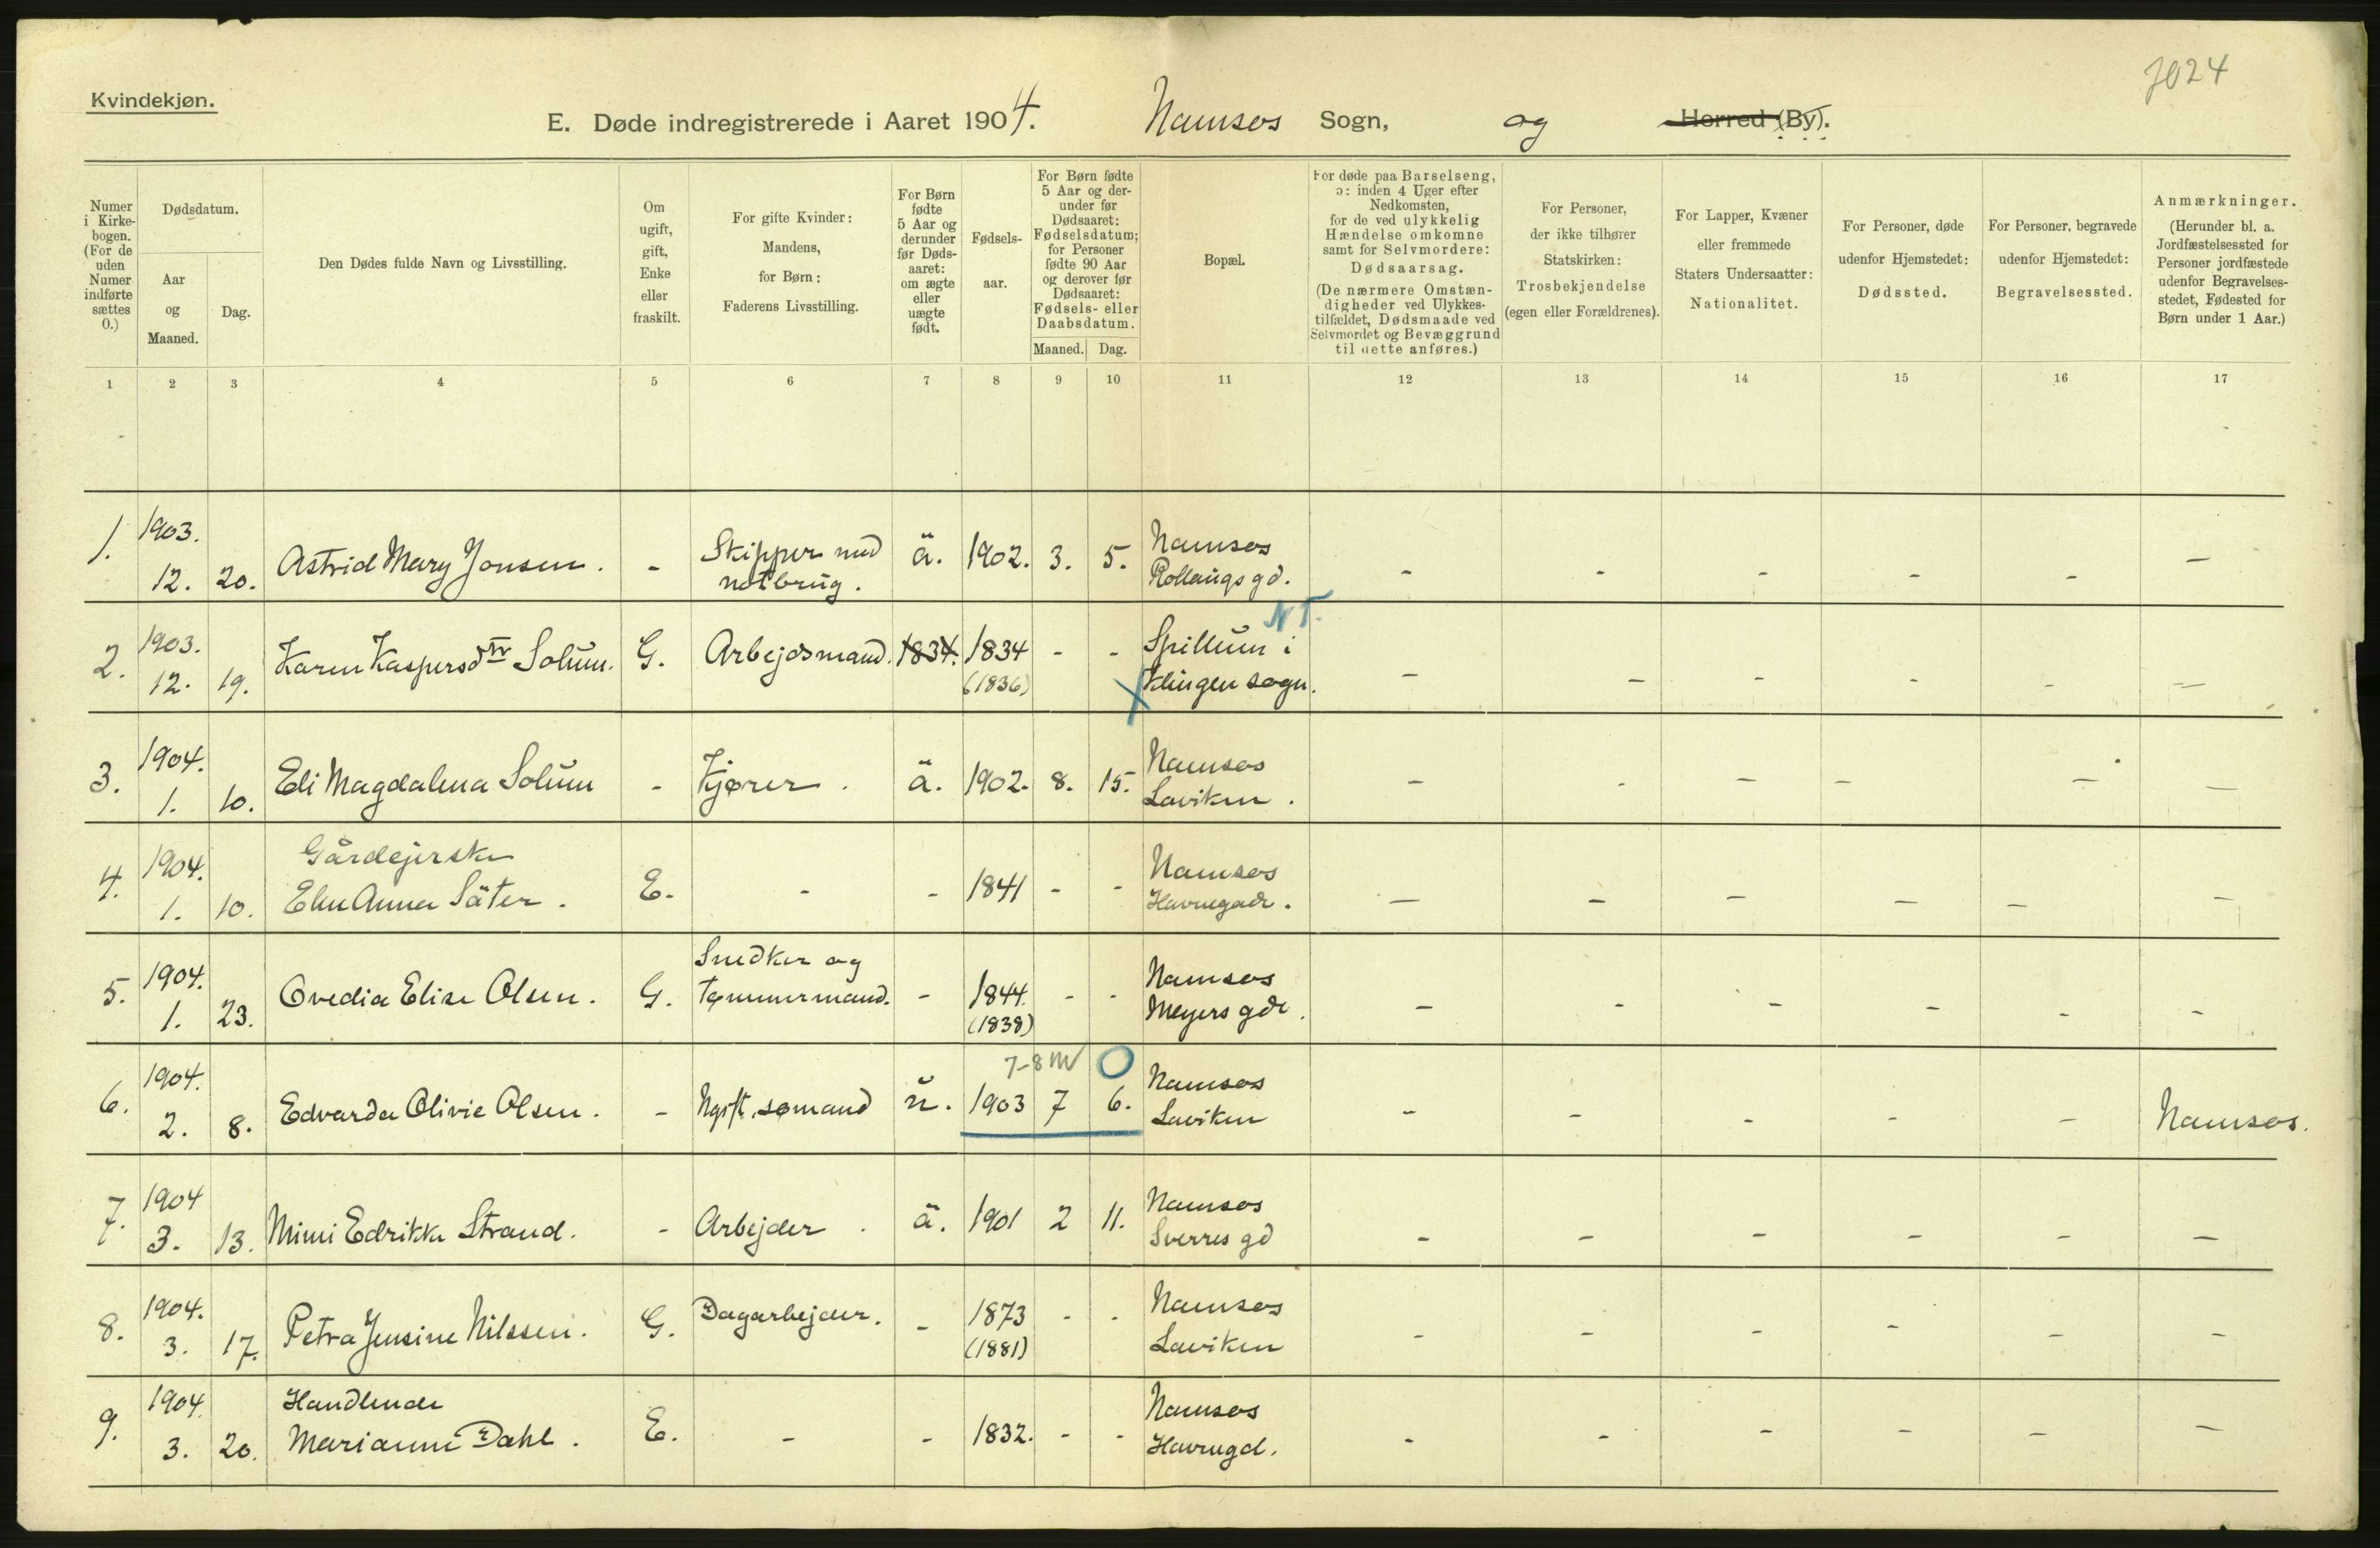 Kvindekjøn.
7024
E. Døde indregistrerede i Aaret 1904. Namsos Sogn, og Herred (By).
Numer i Kirkebogen. (For de uden Numer indførte sættes 0.)
Dødsdatum.
Aar og Maaned.
Dag.
Den Dødes fulde Navn og Livsstilling.
Om ugift, gift, Enke eller fraskilt.
For gifte Kvinder: Mandens, for Børn: Faderens Livsstilling.
For Børn fødte 5 Aar og derunder før Dødsaaret: om ægte eller uægte født.
Fødselsaar.
For Børn fødte 5 Aar og derunder før Dødsaaret: Fødselsdatum; for Personer fødte 90 Aar og derover før Dødsaaret: Fødsels- eller Daabsdatum.
Maaned. Dag.
Bopæl.
For døde paa Barselseng, ɔ: inden 4 Uger efter Nedkomsten, for de ved ulykkelig Hændelse omkomne samt for Selvmordere: Dødsaarsag. (De nærmere Omstændigheder ved Ulykkestilfældet, Dødsmaade ved Selvmordet og Bevæggrund til dette anføres.)
For Personer, der ikke tilhører Statskirken: Trosbekjendelse (egen eller Forældrenes).
For Lapper, Kvæner eller fremmede Staters Undersaatter: Nationalitet.
For Personer, døde udenfor Hjemstedet: Dødssted.
For Personer, begravede udenfor Hjemstedet: Begravelsessted.
Anmærkninger. (Herunder bl. a. Jordfæstelsessted for Personer jordfæstede udenfor Begravelsesstedet, Fødested for Børn under 1 Aar.)
1 2 3 4 5 6 7 8 9 10 11 12 13 14 15 16 17
1. 1903. 12. 20. Astrid Mary Jonsen. - Skipper med notbrug. ä. 1902. 3. 5. Namsos Rollaugsgd. - - - - - -
2. 1903. 12. 19. Karen Kaspersdtr Solum. G. Arbejdsmand. 1834. 1834 (1836) - - Spillum i Klingen sogn. NT. - - - - - -
3. 1904. 1. 10. Eli Magdalena Solum - Kjører. ä. 1902. 8. 15. Namsos Laviken. - - - - - -
4. 1904. 1. 10. Gårdejerske Elen Anna Säter. E. - - 1841 - - Namsos Havnegade. - - - - - -
5. 1904. 1. 23. Ovedia Elise Olsen. G. Snedker og tømmermand. - 1844. (1838) - - Namsos Meyers gde. - - - - - -
6. 1904. 2. 8. Edvarda Olivie Olsen. - Ugift sømand u. 7-8 M 1903 7 6. Namsos Laviken - - - - - Namsos.
7. 1904 3. 13. Mimi Edrikke Strand. - Arbejder. ä. 1901 2 11. Namsos Sverres gd - - - - - -
8. 1904. 3. 17. Petra Jensine Nilssen. G. Dagarbejder. - 1873 (1881) - - Namsos Laviken - - - - - -
9. 1904. 3. 20. Handlende Marianne Dahl. E. - - 1832. - - Namsos Havnegd. - - - - - -